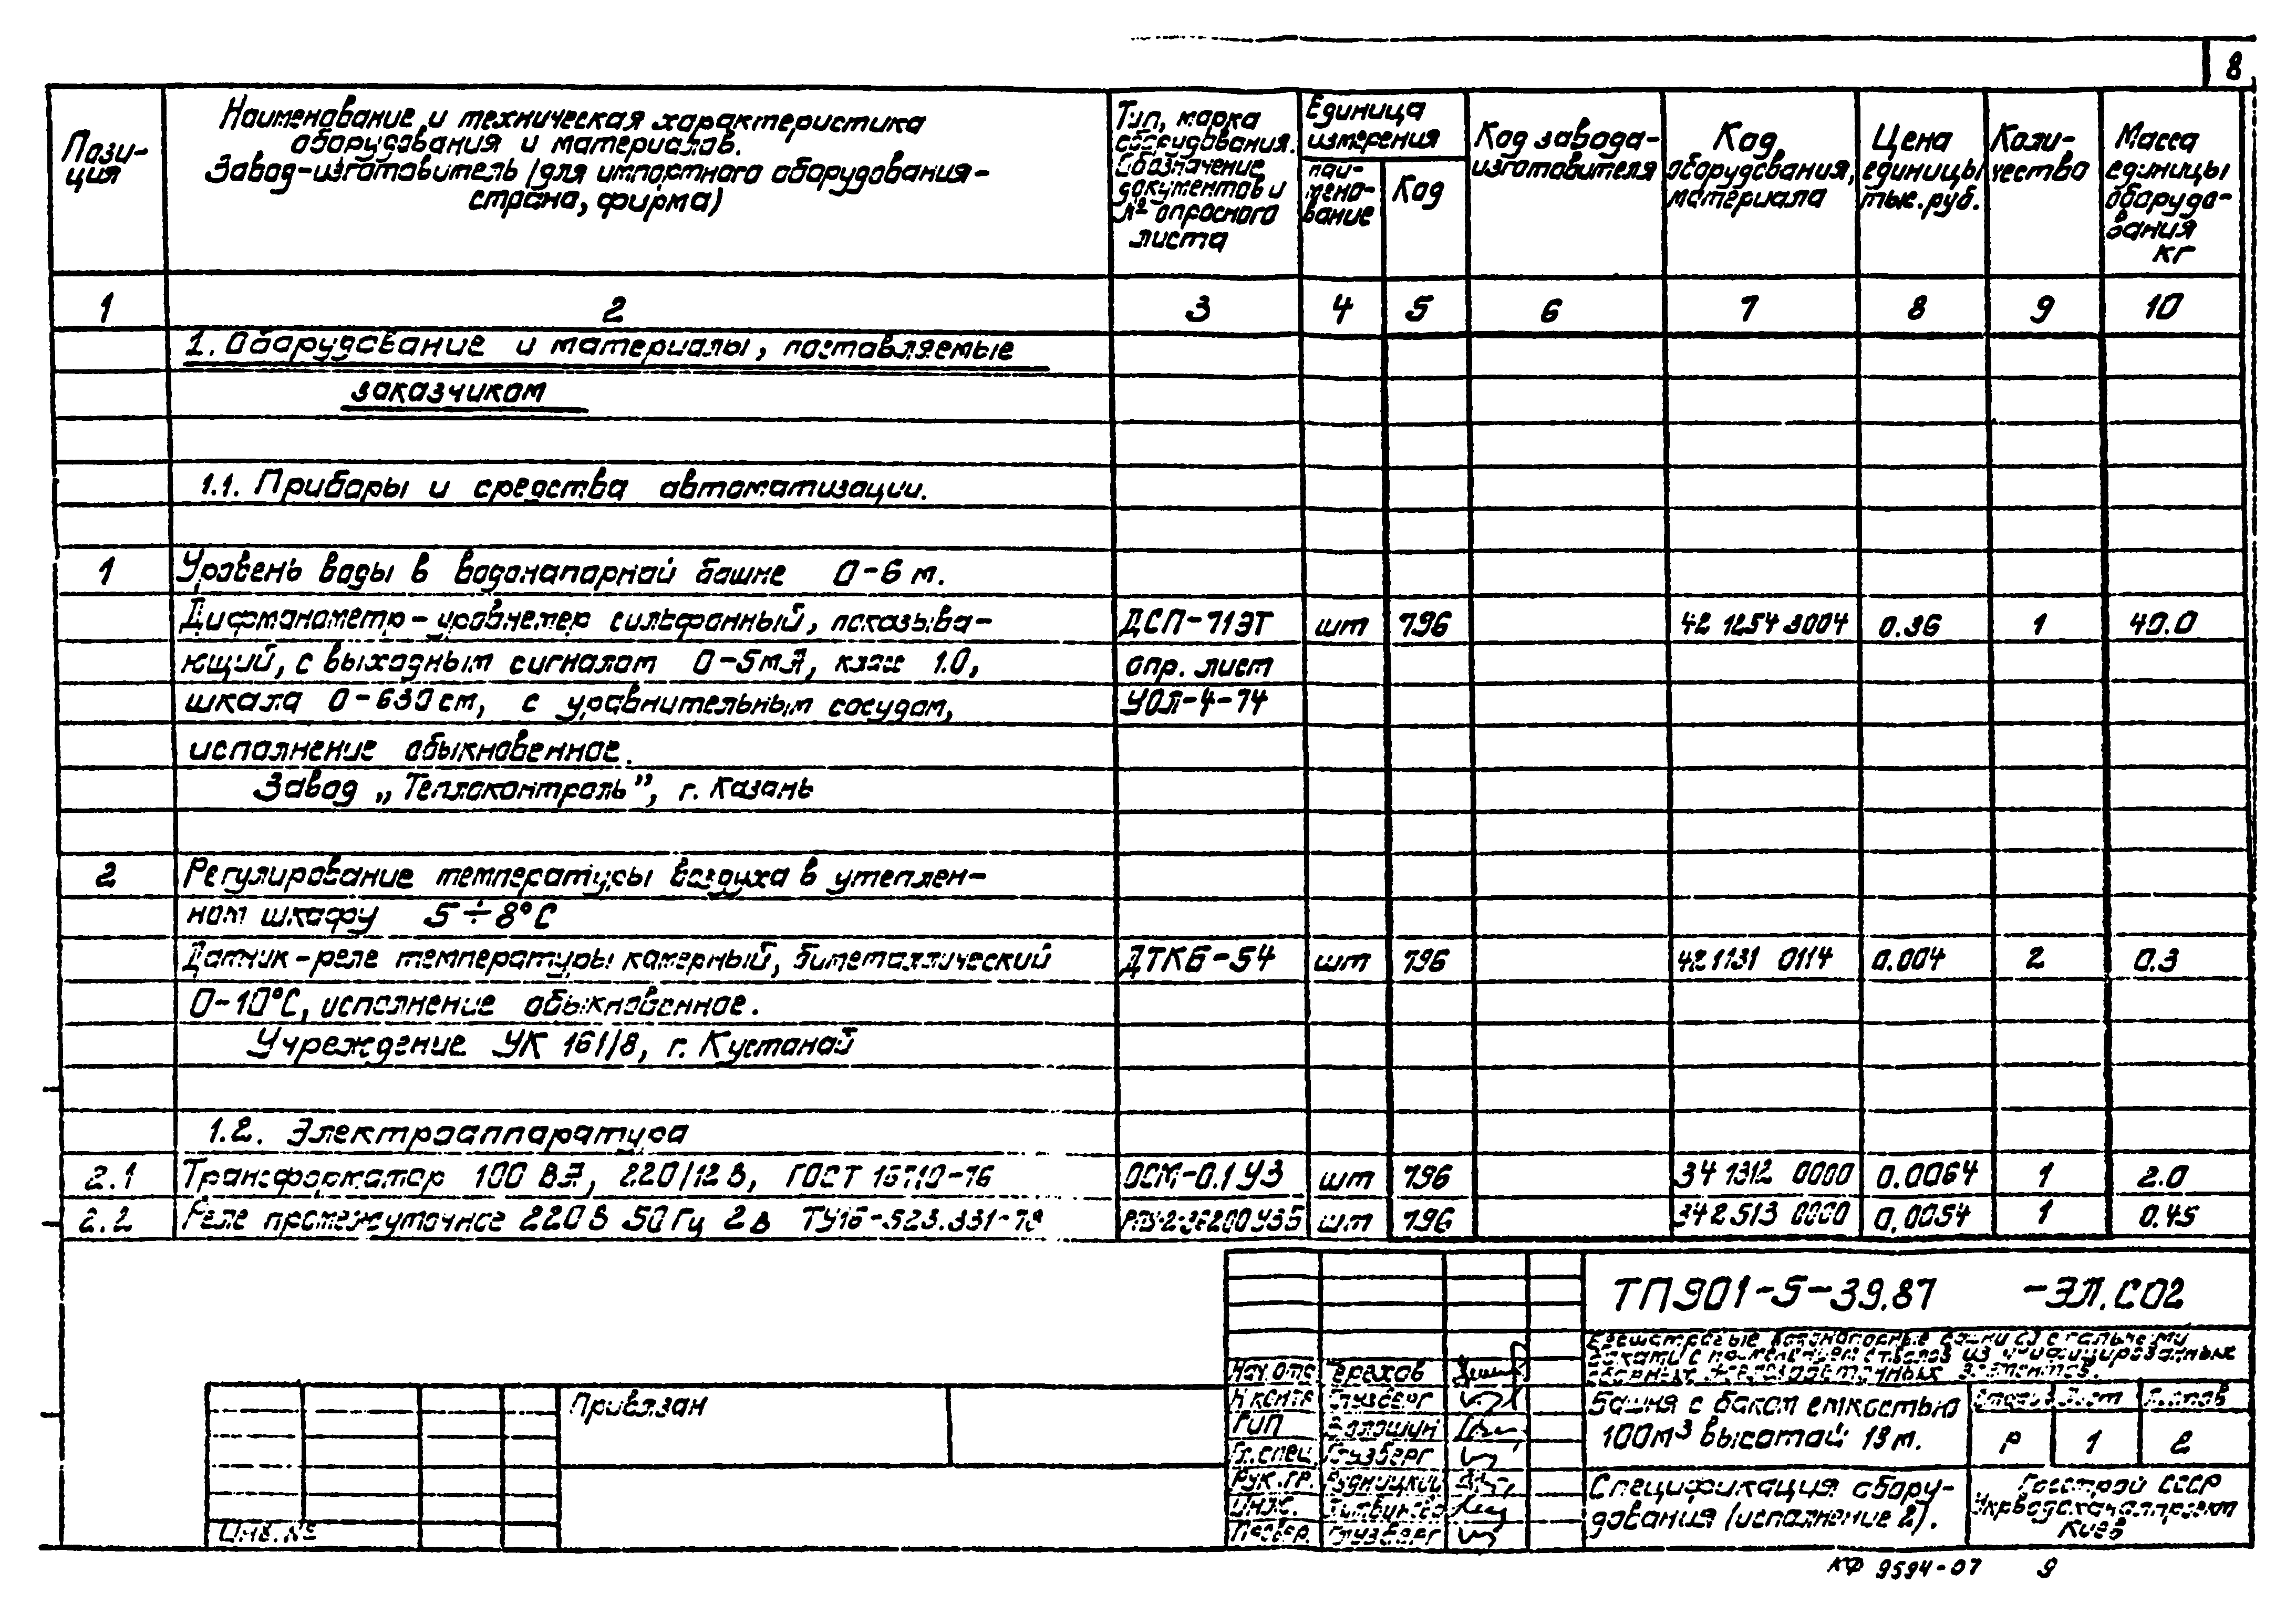 8
Пози-
ция
Наименование и техническая характеристика
оборудования и материалов.
Завод-изготовитель (для импортного оборудования-
страна, фирма)
Тип, марка
оборудования.
Обозначение
документов и
№ опросного
листа
Единица
измерения
наи-
мено-
вание
Код
Код завода-
изготовителя
Код
оборудования,
материала
Цена
единицы
тыс.руб.
Коли-
чество
Масса
единицы
оборудо-
вания
кг
1 2 3 4 5 6 7 8 9 10
1. Оборудование и материалы, поставляемые
заказчиком
1.1. Приборы и средства автоматизации.
1 Уровень воды в водонапорной башне 0-6 м.
Дифманометр-уровнемер сильфонный, показыва- ДСП-71ЭТ шт 796 42 1254 3004 0.36 1 40.0
ющий, с выходным сигналом 0-5мА, класс 1.0, опр. лист
шкала 0-630 см, с уравнительным сосудом, УОЛ-4-74
исполнение обыкновенное.
Завод „Теплоконтроль”, г. Казань
2 Регулирование температуры воздуха в утеплен-
ном шкафу 5÷8°С
Датчик-реле температуры камерный, биметаллический ДТКБ-54 шт 796 421131 0114 0.004 2 0.3
0-10°С, исполнение обыкновенное.
Учреждение УК 161/8, г. Кустанай
1.2. Электроаппаратура
2.1 Трансформатор 100 ВА, 220/12 В, ГОСТ 16710-76 ОСМ-0.1 У3 шт 796 34 1312 0000 0.0064 1 2.0
2.2 Реле промежуточное 220 В 50 Гц 2 в ТУ16-523.331-78 шт 796 342513 0000 0.0054 1 0.45
ТП 901-5-39.87 -ЭЛ.СО2
Бесшатровые водонапорные башни со стальными
баками с применением стволов из унифицированных
сборных железобетонных элементов.
Башня с баком емкостью
100м³ высотой 18 м.
Стадия Лист Листов
Р 1 2
Спецификация обору-
дования (исполнение 2).
Госстрой СССР
Укрводоканалпроект
Киев
Нач.отд Терехов
Н.контр Грузберг
ГИП Волошин
Гл.спец. Грузберг
Рук.гр. Рудницкий
Инж.
Провер. Грузберг
Привязан
Инв.№
КФ 9594-07 9